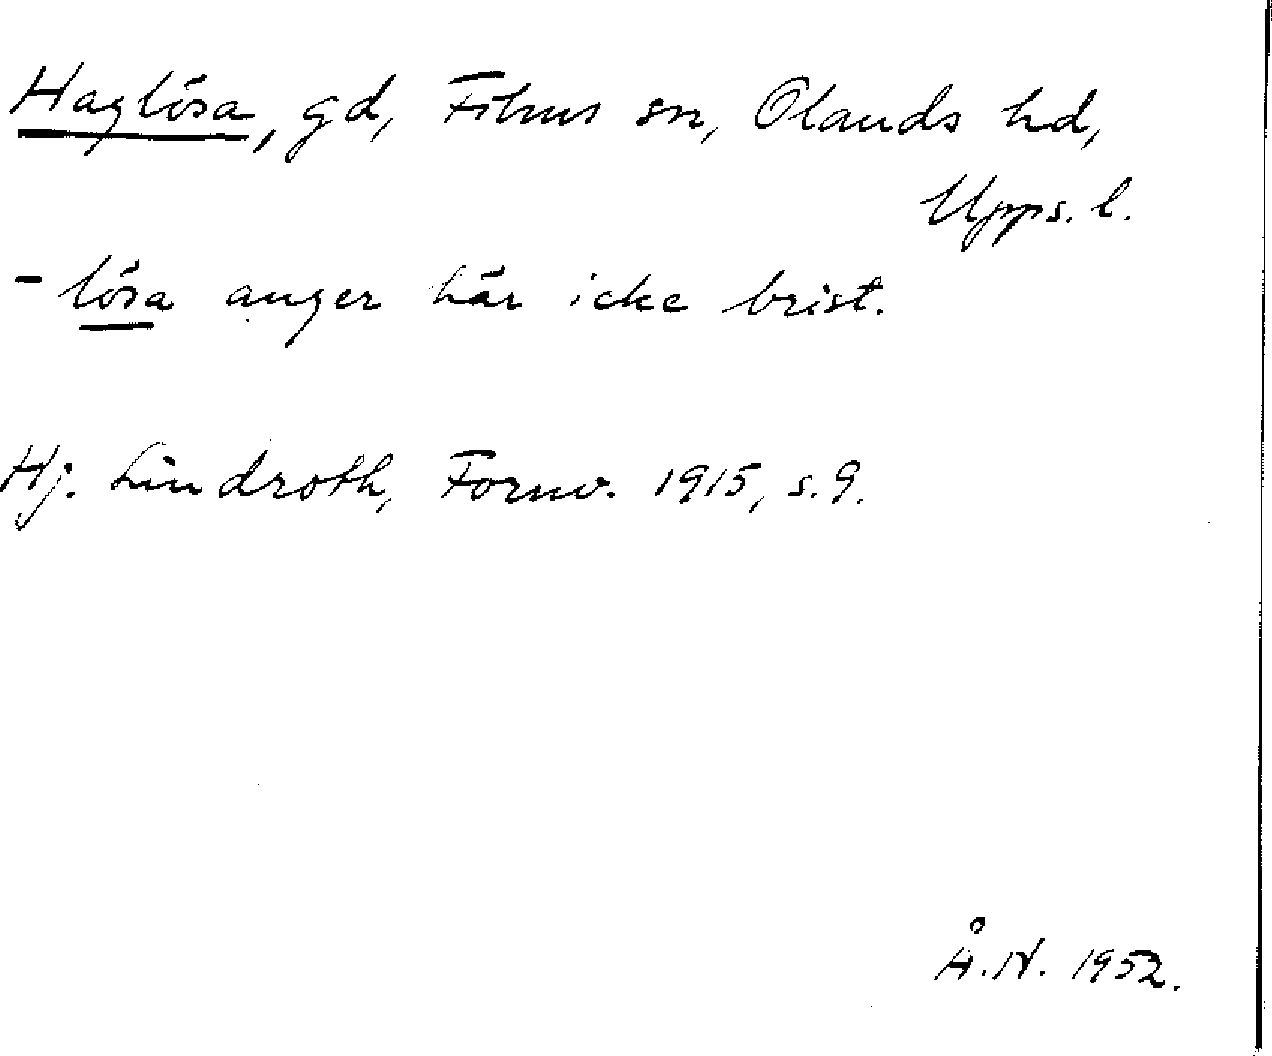 Haglösa, gd, Films sn, Olands hd,
Upps. l.
- lösa anger här icke brist.
Hj. Lindroth, Fornv. 1915, s. 9.
Å.N. 1952.